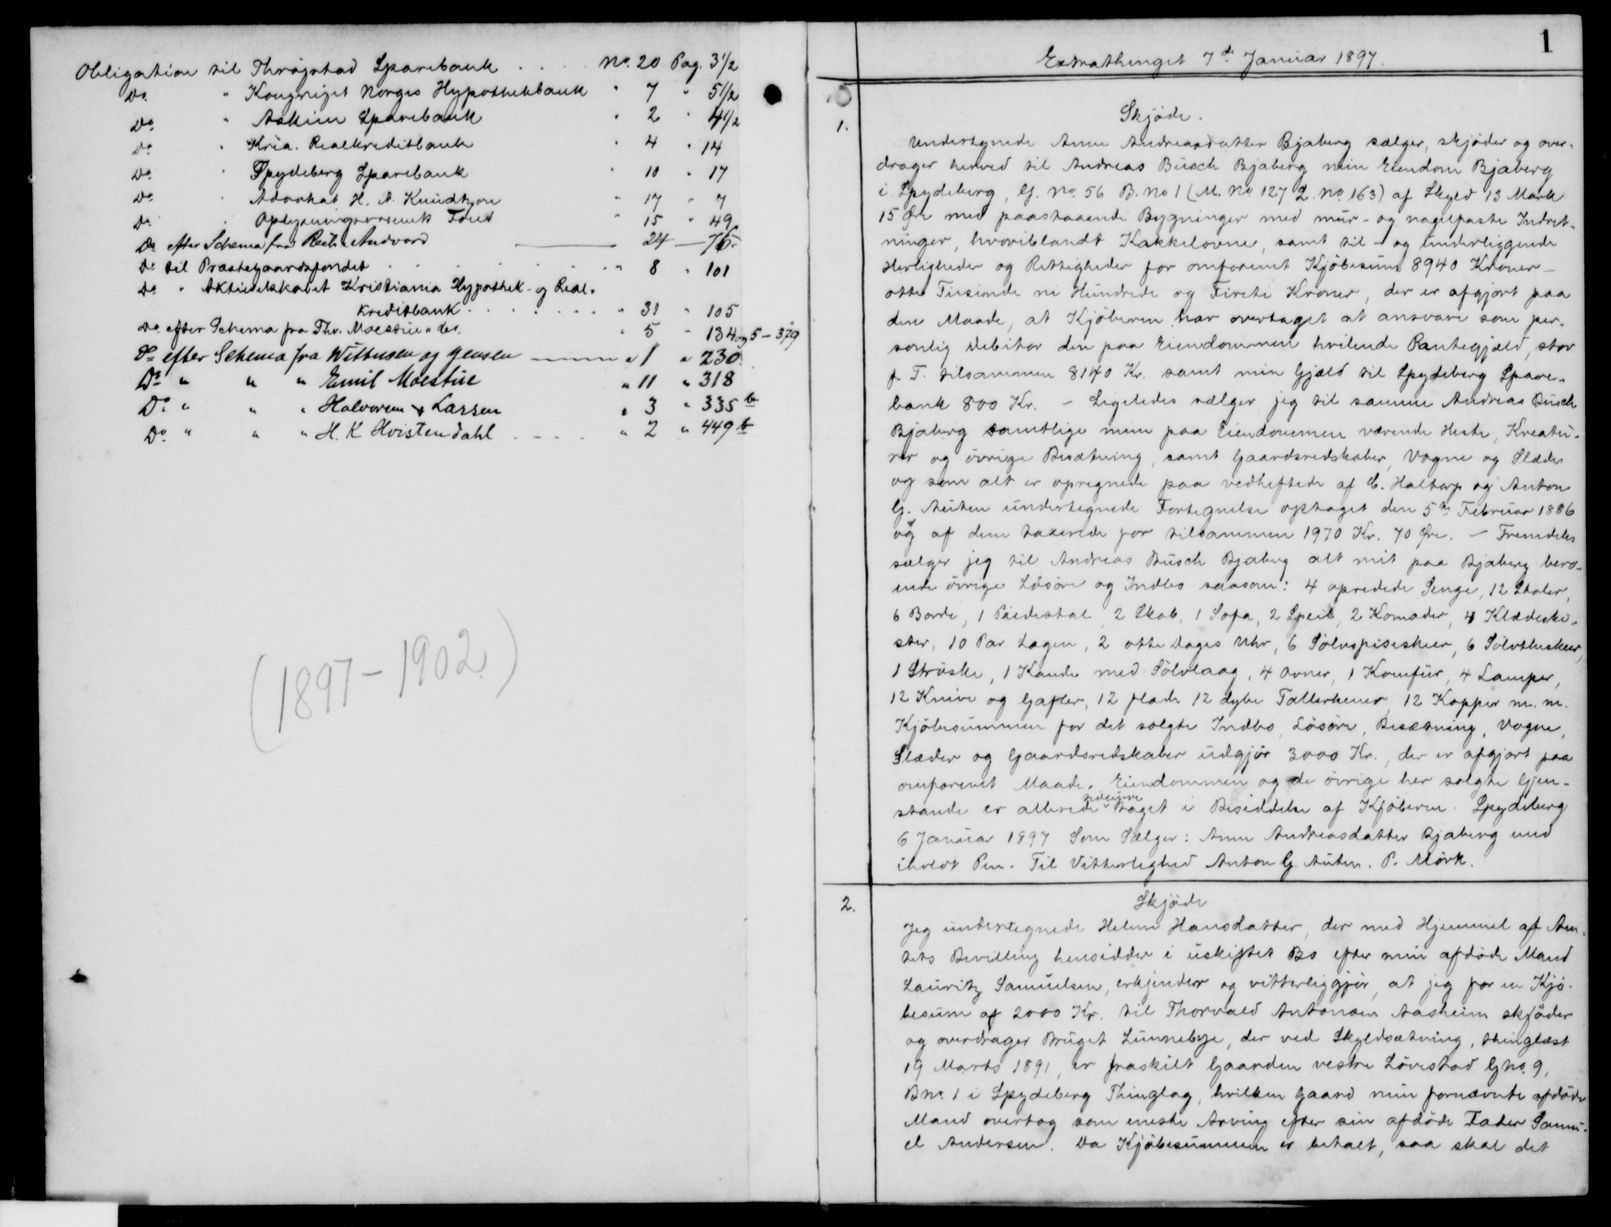 Obligation til Thrøgstad Sparebank . . . . No. 20 Pag. 31/2
Do. " Kongeriget Norges Hypothekbank " 7 " 51/2
Do " Askim Sparebank " 2 " 41/2
Do " Kria. Realkreditbank " 4 " 14
Do " Spydeberg Sparebank " 10 " 17
Do " Advokat H. A. Knudtzon " 17 " 7
Do " Oplysningsvæsenets Fond " 15 " 49
Do efter Schema fra Andvord 24 — 76
Do til Præstegaardsfondet . . . " 8 " 101
Do " Aktieselskabet Kristiania Hypothek- og Real-
kreditbank . . . . . . " 31 " 105
Do efter Schema fra Thv. Moestue " 5 " 134 og 5 – 379
Do efter Schema fra Wittusen og Jensen " 1 " 230
Do " " " Emil Moestue " 11 " 318
Do " " " Halvorsen & Larsen " 3 " 335 b
Do " " " H. K. Hoistendahl . . . . " 2 " 449 b
(1897-1902)
1
Extrathinget 7de Januar 1897.
1.
Skjøde.
Undertegnede Anne Andreasdatter Bjaberg sælger, skjøder og over-
drager herved til Andreas Busch Bjaberg min Eiendom Bjaberg
i Spydeberg, G. No 56 B. No 1 (M. No 127 L. No 163) af Skyld 13 Mark
15 Øre med paastaaende Bygninger med mur- og nagelfaste Indret-
ninger, hvoriblandt Kakkelovne, samt til- og underliggende
Herligheder og Rettigheder for omforenet Kjøbesum 8940 Kroner –
otte Tusinde ni Hundrede og Firti Kroner, der er afgjort paa
den Maade, at Kjøberen har overtaget at ansvare som per-
sonlig Debitor den paa Eiendommen hvilende Pantegjæld, stor
p. T. tilsammen 8140 Kr. samt min Gjæld til Spydeberg Spare-
bank 800 Kr. – Ligeledes sælger jeg til samme Andreas Busch
Bjaberg samtlige mine paa Eiendommen værende Heste, Kreatu-
rer og øvrige Besætning, samt Gaardsredskaber, Vogne og Slæder
og som alt er opregnede paa vedheftede af C. Haltorp og Anton
G. Auten undertegnede Fortegnelse optaget den 5te Februar 1886
og af dem taxerede for tilsammen 1970 Kr. 70 Øre. – Fremdeles
sælger jeg til Andreas Busch Bjaberg alt mit paa Bjaberg bero-
ende øvrige Løsøre og Indbo saasom: 4 opredede Senge, 12 Stoler,
6 Borde, 1 Piedestal, 2 Skab, 1 Sofa, 2 Speil, 2 Komoder, 4 Klædeski-
ster, 10 Par Lagen, 2 otte Dages Uhr, 6 Sølvspiseskeer, 6 Sølvtheskeer,
1 Strøske, 1 Kande med Sølvlaag, 4 Ovner, 1 Komfur, 4 Lamper,
12 Knive og Gafler, 12 flade 12 dybe Tallerkener, 12 Kopper m. m.
Kjøbesummen for det solgte Indbo, Løsøre, Besætning, Vogne,
Slæder og Gaardsredskaber udgjør 3000 Kr., der er afgjort paa
omforenet Maade. Eiendommen og de øvrige her solgte Gjen-
stande er allerede taget i Besiddelse af Kjøberen. Spydeberg
6 Januar 1897 Som Sælger: Anne Andreasdatter Bjaberg med
iholdt Pen. Til Vitterlighed Anton G. Auten. P. Mørk.
2.
Skjøde
Jeg undertegnede Helene Hansdatter, der med Hjemmel af Am-
tets Bevilling hensidder i uskiftet Bo efter min afdøde Mand
Lauritz Samuelsen, erkjender og vitterliggjør, at jeg for en Kjø-
besum af 2000 Kr. til Thorvald Antonsen Aasheim skjøder
og overdrager Bruget Lunnebye, der ved Skyldsætning, thinglæst
19 Marts 1891, er fraskilt Gaarden vestre Løvestad Gno. 9,
Bno. 1 i Spydeberg Thinglag, hvilken Gaard min fornævnte afdøde
Mand overtog som eneste Arving efter sin afdøde Fader Samu-
el Andersen. Da Kjøbesummen er betalt, saa skal det